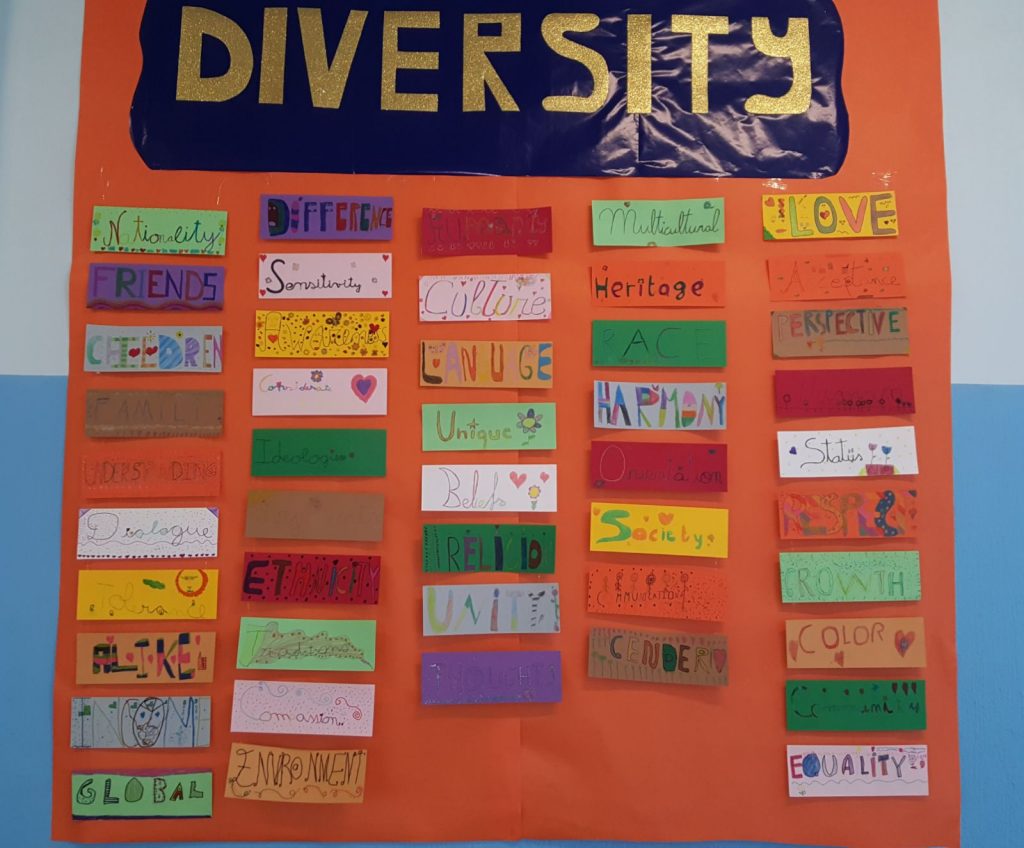 DIVERSITY
Nationality
FRIENDS
CHILDREN
FAMILY
UNDERSTANDING
Dialogue
Tolerance
ALIKE
GLOBAL
DIFFERENCE
Sensitivity
Ideologies
ETHNICITY
Traditions
Comassión
ENVIRONMENT
Culture
LANGUAGE
Unique
Beliefs
RELIGIO
UNITY
THOUGHTS
Multicultural
Heritage
RACE
HARMONY
Orientation
Society
COMMUNICATION
GENDER
LOVE
Acceptance
PERSPECTIVE
Status
RESPECT
GROWTH
COLOR
Community
EQUALITY